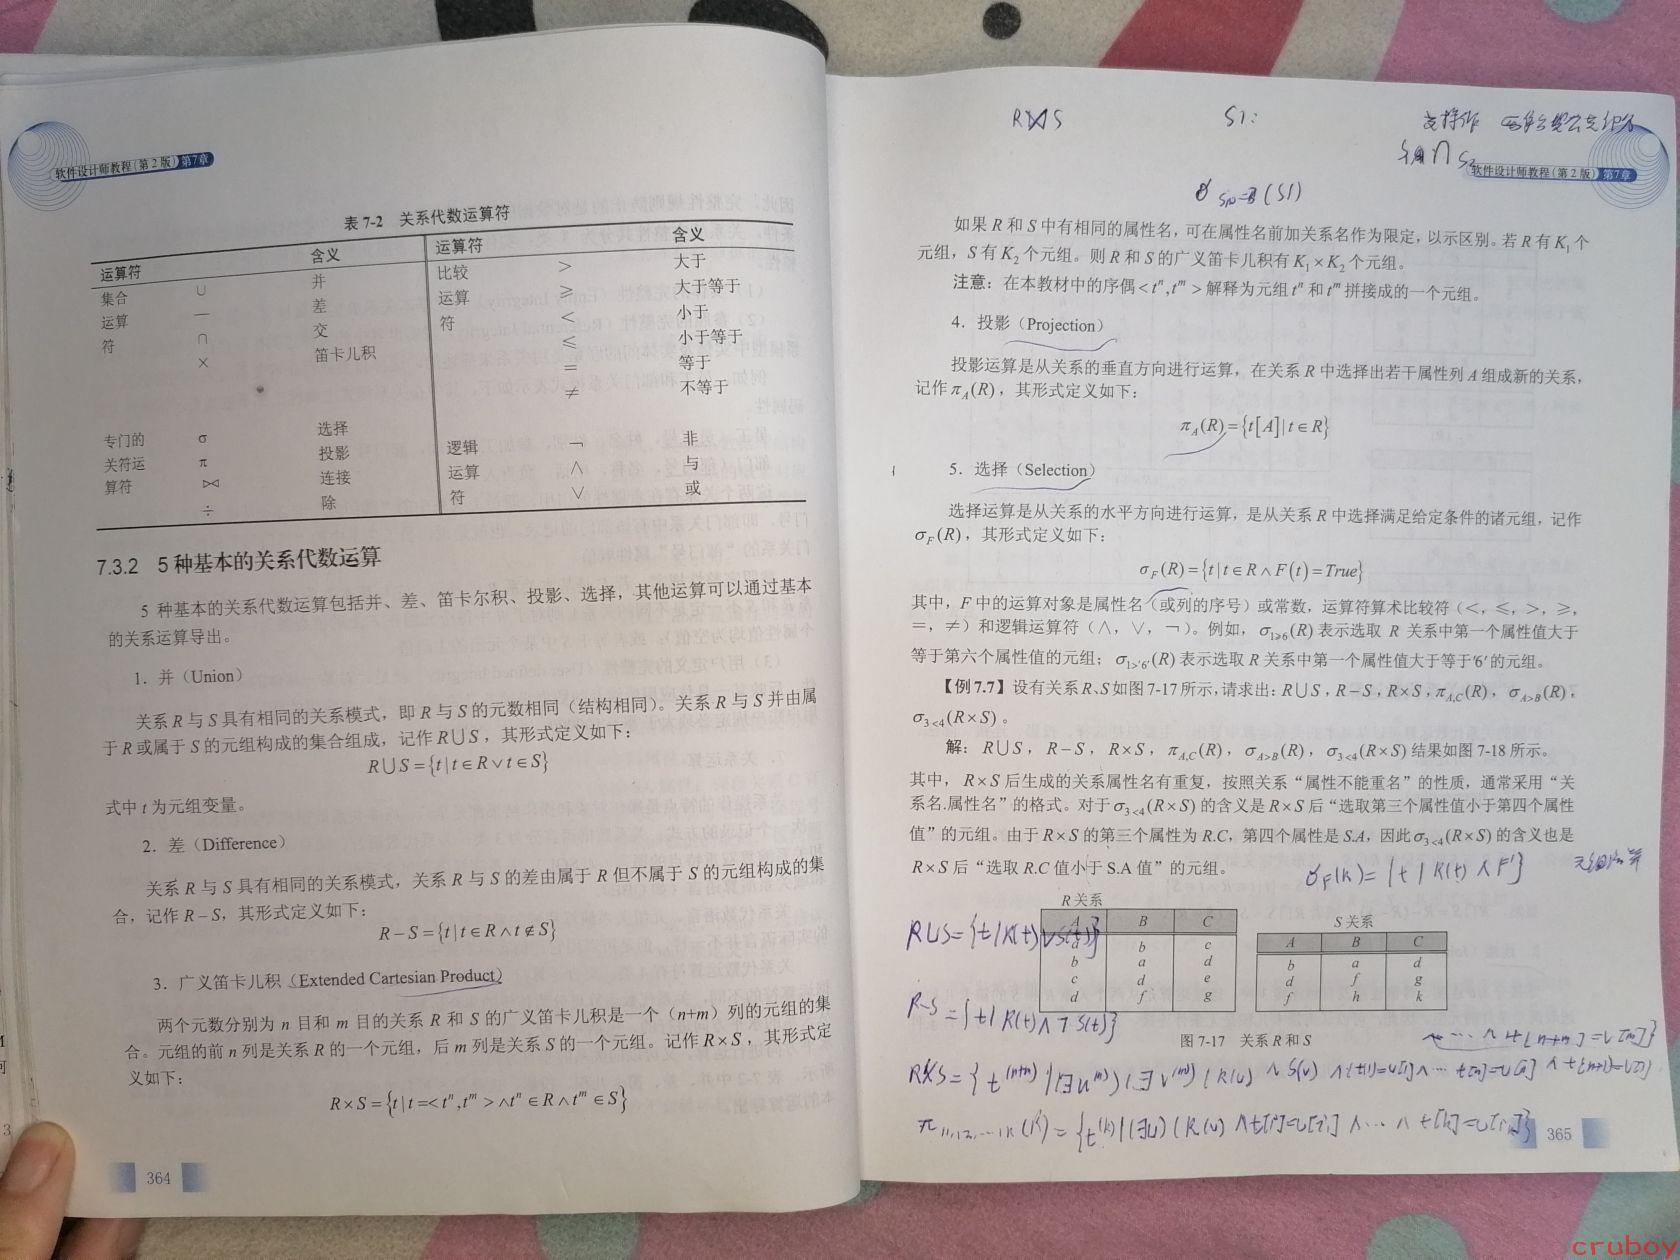 软件设计师教程(第2版) 第7章
表 7-2 关系代数运算符
运算符 含义 运算符 含义
集合 ∪ 并 比较 > 大于
运算 — 差 运算 ≥ 大于等于
符 ∩ 交 符 < 小于
× 笛卡儿积 ≤ 小于等于
= 等于
≠ 不等于
专门的 σ 选择 逻辑 ¬ 非
关符运 π 投影 运算 ∧ 与
算符 ⋈ 连接 符 ∨ 或
÷ 除
7.3.2 5种基本的关系代数运算
5 种基本的关系代数运算包括并、差、笛卡尔积、投影、选择，其他运算可以通过基本
的关系运算导出。
1．并（Union）
关系 R 与 S 具有相同的关系模式，即 R 与 S 的元数相同（结构相同）。关系 R 与 S 并由属
于 R 或属于 S 的元组构成的集合组成，记作 R∪S，其形式定义如下：
R∪S={t|t∈R∨t∈S}
式中 t 为元组变量。
2．差（Difference）
关系 R 与 S 具有相同的关系模式，关系 R 与 S 的差由属于 R 但不属于 S 的元组构成的集
合，记作 R−S，其形式定义如下：
R−S={t|t∈R∧t∉S}
3．广义笛卡儿积（Extended Cartesian Product）
两个元数分别为 n 目和 m 目的关系 R 和 S 的广义笛卡儿积是一个（n+m）列的元组的集
合。元组的前 n 列是关系 R 的一个元组，后 m 列是关系 S 的一个元组。记作 R×S，其形式定
义如下：
R×S={t|t=<tⁿ,tᵐ>∧tⁿ∈R∧tᵐ∈S}
364
R⋈S S1:
软件设计师教程(第2版) 第7章
如果 R 和 S 中有相同的属性名，可在属性名前加关系名作为限定，以示区别。若 R 有 K₁ 个
元组，S 有 K₂ 个元组。则 R 和 S 的广义笛卡儿积有 K₁×K₂ 个元组。
注意：在本教材中的序偶<tⁿ,tᵐ>解释为元组 tⁿ 和 tᵐ 拼接成的一个元组。
4．投影（Projection）
投影运算是从关系的垂直方向进行运算，在关系 R 中选择出若干属性列 A 组成新的关系，
记作 π_A(R)，其形式定义如下：
π_A(R)={t[A]|t∈R}
5．选择（Selection）
选择运算是从关系的水平方向进行运算，是从关系 R 中选择满足给定条件的诸元组，记作
σ_F(R)，其形式定义如下：
σ_F(R)={t|t∈R∧F(t)=True}
其中，F 中的运算对象是属性名（或列的序号）或常数，运算符算术比较符（<，≤，>，≥，
=，≠）和逻辑运算符（∧，∨，¬）。例如，σ₁≥₆(R) 表示选取 R 关系中第一个属性值大于
等于第六个属性值的元组；σ₁>'₆'(R) 表示选取 R 关系中第一个属性值大于等于'6'的元组。
【例 7.7】设有关系 R、S 如图 7-17 所示，请求出：R∪S，R−S，R×S，π_A,C(R)，σ_A>B(R)，
σ₃<₄(R×S)。
解：R∪S，R−S，R×S，π_A,C(R)，σ_A>B(R)，σ₃<₄(R×S) 结果如图 7-18 所示。
其中，R×S 后生成的关系属性名有重复，按照关系“属性不能重名”的性质，通常采用“关
系名.属性名”的格式。对于 σ₃<₄(R×S) 的含义是 R×S 后“选取第三个属性值小于第四个属性
值”的元组。由于 R×S 的第三个属性为 R.C，第四个属性是 S.A，因此 σ₃<₄(R×S) 的含义也是
R×S 后“选取 R.C 值小于 S.A 值”的元组。
R∪S={t|R(t)∨S(t)}
R-S={t|R(t)∧¬S(t)}
R 关系
A B C
a b c
b a d
c d e
d f g
S 关系
A B C
b a d
d f g
f h k
图 7-17 关系 R 和 S
365
cruboy